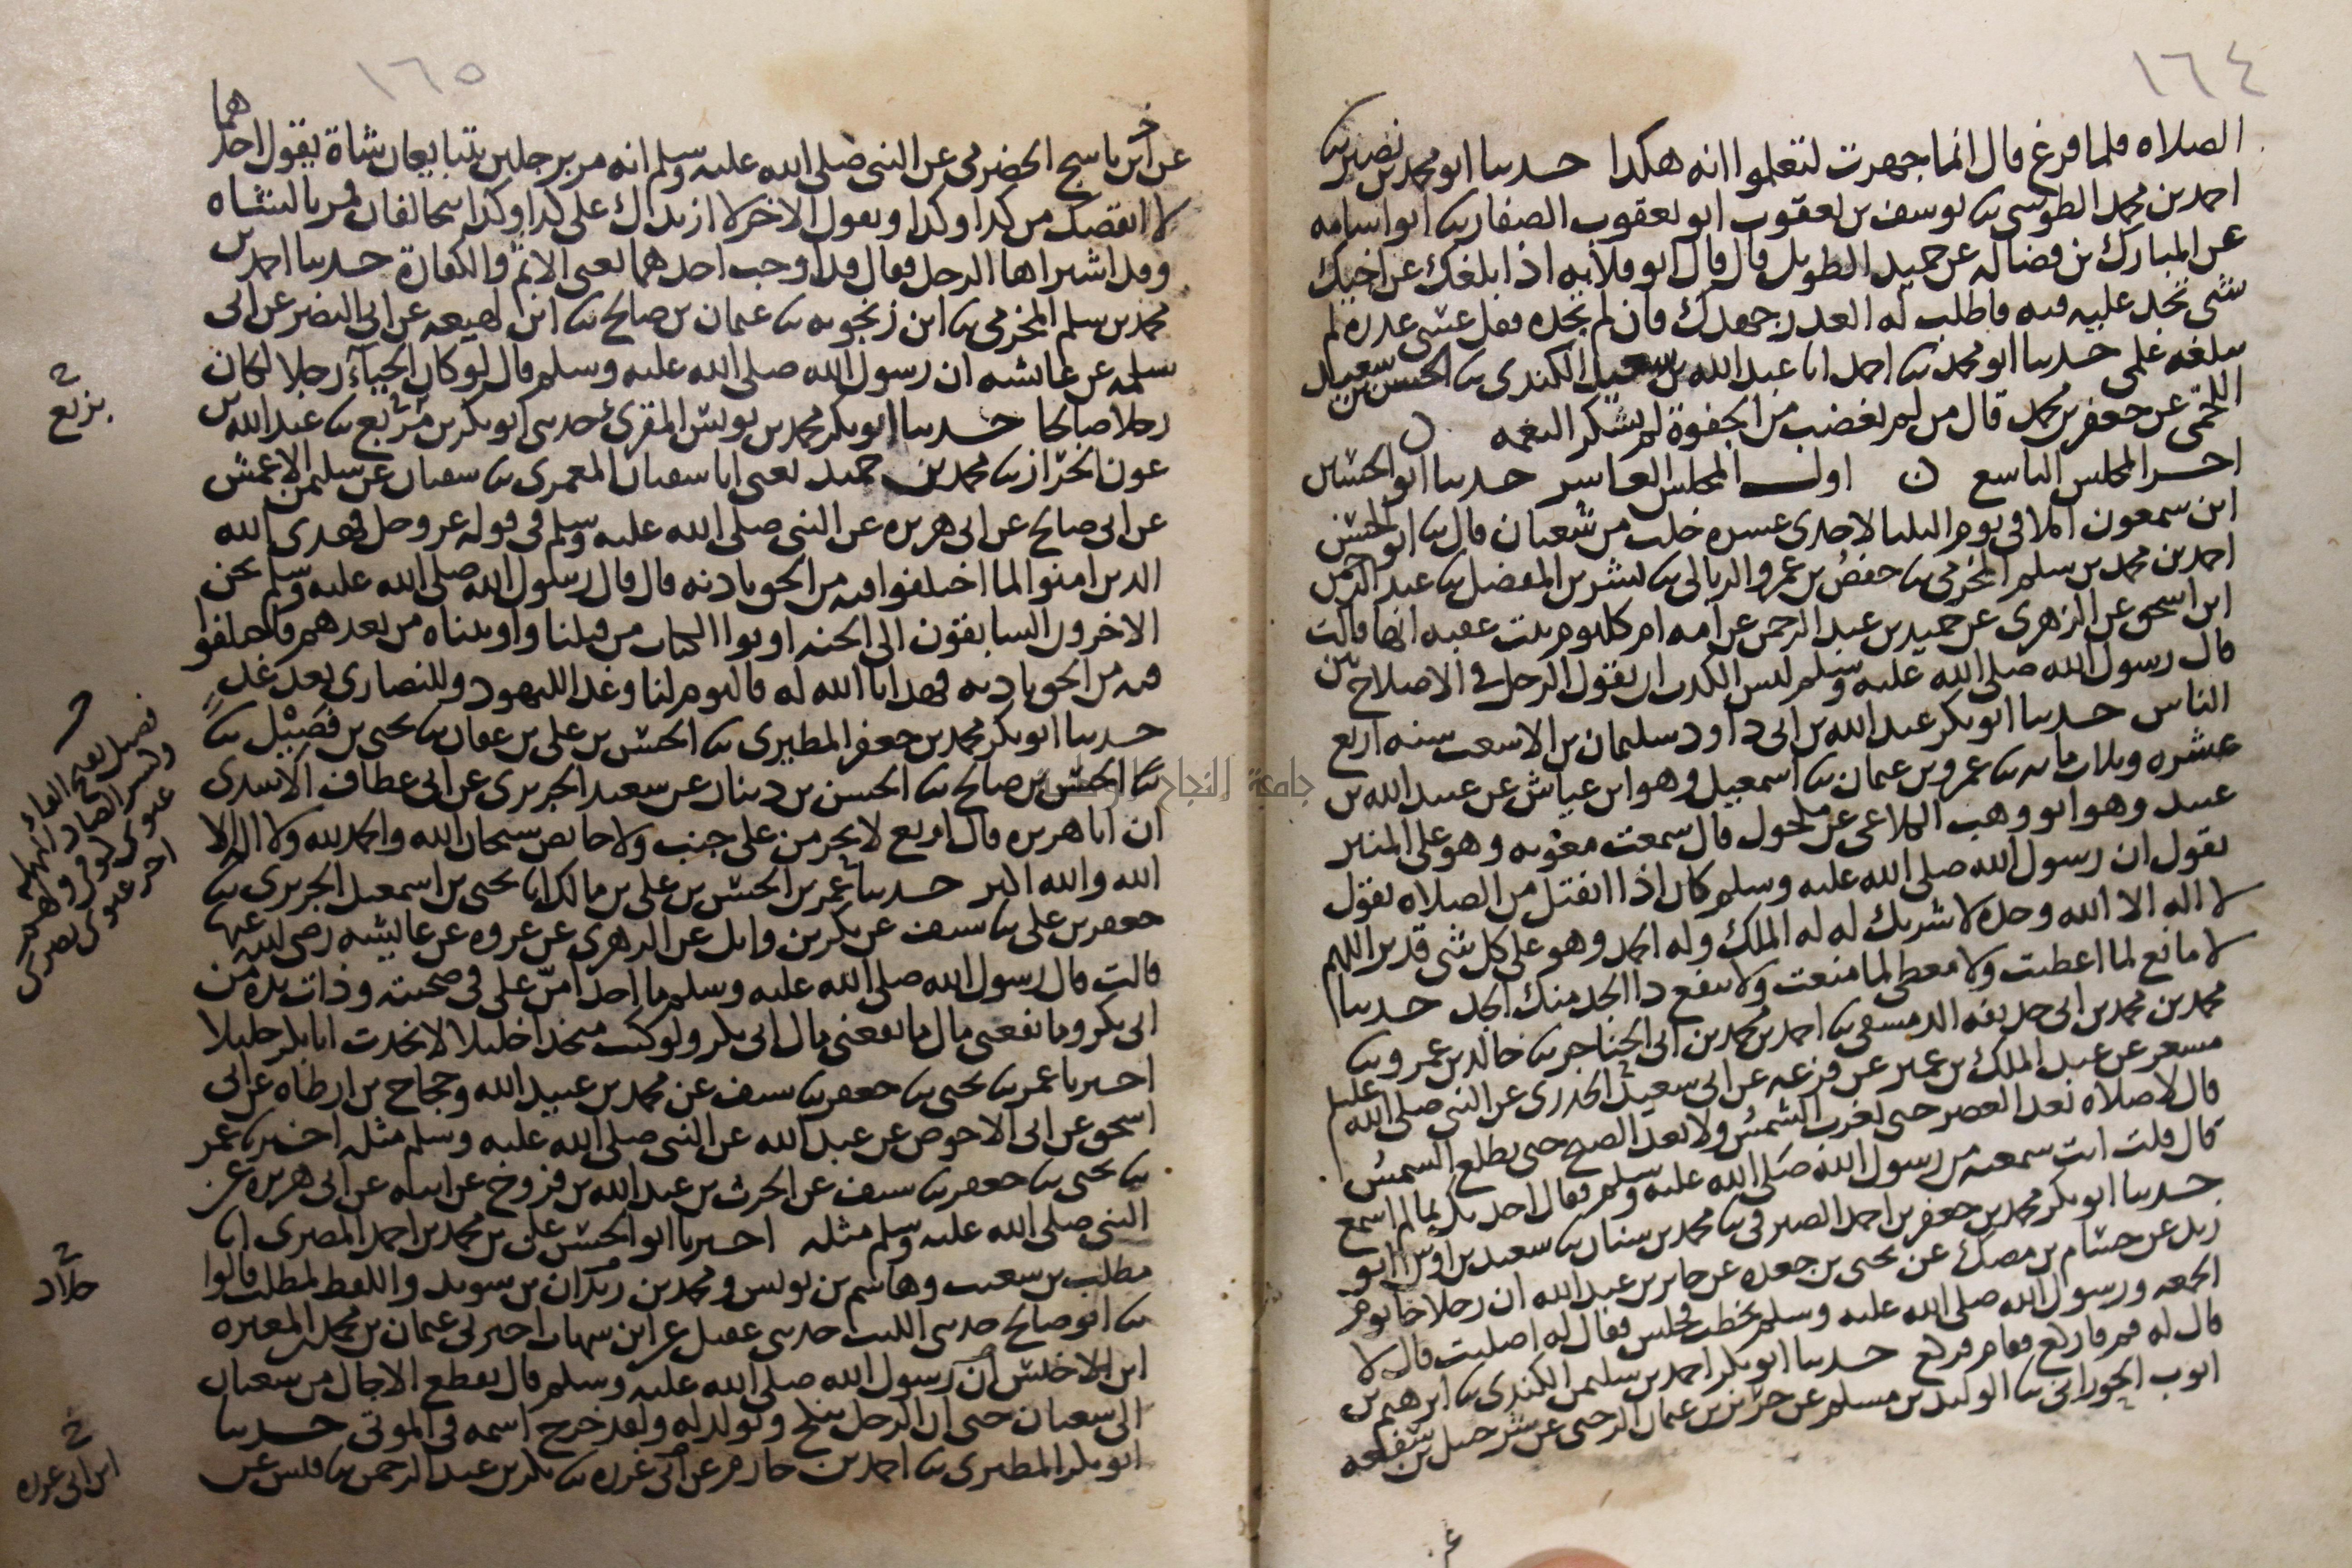 ١٦٤
الصلاه فلما فرغ قال انما جهرت لتعلموا انه هكذا حدثنا ابو محمد بن نصير ثنا
احمد بن محمد الطوسي ثنا يوسف بن يعقوب ابو يعقوب الصفار ثنا ابو اسامه
عن المبارك بن فضاله عن حميد الطويل قال قال ابو قلابه اذا بلغك عن اخيك
شي تجد عليه فيه فاطلب له العذر جهدك فان لم تجده فقل عسى عذره لم
يبلغه علمي حدثنا ابو محمد ثنا احمد ابا عبد الله بن سعيد الكندي ثنا الحسن بن سعيد
اللخمي عن جعفر بن محمد قال من لم يغضب من الجفوة لم يشكر النعمه ن
اخر المجلس التاسع ن اول المجلس العاشر حدثنا ابو الحسين
ابن سمعون املا في يوم الثلثا لاحدى عشره خلت من شعبان قال ثنا ابو الحسن
احمد بن محمد بن سلم المخرمي ثنا حفص بن عمرو الربالي ثنا بشر بن المفضل ثنا عبد الرحمن
ابن اسحق عن الزهري عن حميد بن عبد الرحمن عن امه ام كلثوم بنت عقبه انها قالت
قال رسول الله صلى الله عليه وسلم ليس الكذب ان يقول الرجل في الاصلاح بين
الناس حدثنا ابو بكر عبد الله بن ابي داود سليمان بن الاشعث سنه اربع
عشره وثلاث مايه ثنا عمرو بن عثمان ثنا اسمعيل وهو ابن عياش عن عبيد الله بن
عبيد وهو ابو وهب الكلاعي عن مكحول قال سمعت معويه وهو على المنبر
يقول ان رسول الله صلى الله عليه وسلم كان اذا انفتل من الصلاه يقول
لا اله الا الله وحده لا شريك له له الملك وله الحمد وهو على كل شي قدير اللهم
لا مانع لما اعطيت ولا معطي لما منعت ولا ينفع ذا الجد منك الجد حدثنا
محمد بن محمد بن ابي حذيفه الدمشقي ثنا احمد بن محمد بن ابي الخناجر ثنا خالد بن عمرو ثنا
مسعر عن عبد الملك بن عمير عن قزعه عن ابي سعيد الخدري عن النبي صلى الله عليه
قال لا صلاه بعد العصر حتى تغرب الشمس ولا بعد الصبح حتى تطلع الشمس
قال قلت انت سمعته من رسول الله صلى الله عليه وسلم فقال احدثك بما لم اسمع
حدثنا ابو بكر محمد بن جعفر بن احمد الصيرفي ثنا محمد بن سنان ثنا سعيد بن اوس ابو
زيد عن حسام بن مصك عن يحيى بن جعده عن جابر بن عبد الله ان رجلا جا يوم
الجمعه ورسول الله صلى الله عليه وسلم يخطب فجلس فقال له اصليت قال لا
قال له قم فاركع فقام فركع حدثنا ابو بكر احمد بن سليمن الكندي ثنا ابرهيم بن
ايوب الحوراني ثنا الوليد بن مسلم عن حريز بن عثمان الرحبي عن شرحبيل بن شفعه
عن
١٦٥
عن ابن ناسج الحضرمي عن النبي صلى الله عليه وسلم انه مر برجلين يتبايعان شاة يقول احدهما
لا انقصك من كذا وكذا ويقول الاخر لا ازيدك على كذا وكذا يتحالفان فمر بالشاه
وقد اشتراها الرجل فقال قد اوجب احدهما يعني الاثم والكفارة حدثنا احمد بن
محمد بن سلم المخرمي ثنا ابن زنجويه ثنا عثمان بن صالح ثنا ابن لهيعه عن ابي النضر عن ابي
سلمه عن عايشه ان رسول الله صلى الله عليه وسلم قال لو كان الحياء رجلا لكان
رجلا صالحا حدثنا ابو بكر محمد بن يونس المقرئ حدثني ابو بكر بن بزيع ثنا عبد الله بن
بزيع
عون الخراز ثنا محمد بن حميد يعني ابا سفيان المعمري ثنا سفيان عن سليمن الاعمش
عن ابي صالح عن ابي هريره عن النبي صلى الله عليه وسلم في قوله عز وجل فهدى الله
الذين امنوا لما اختلفوا فيه من الحق باذنه قال قال رسول الله صلى الله عليه وسلم نحن
الاخرون السابقون الى الجنه اوتوا الكتاب من قبلنا واوتيناه من بعدهم فاختلفوا
فيه من الحق باذنه فهدانا الله له فاليوم لنا وغدا لليهود وللنصارى بعد غد
حدثنا ابو بكر محمد بن جعفر المطيري ثنا الحسن بن علي بن عفان ثنا يحيى بن فضيل ثنا
ثنا الحسن بن صالح ثنا الحسن بن دينار عن سعيد الجريري عن ابي عطاف الاسدي
ان ابا هريره قال اربع لا يحرمن على جنب ولا حايض سبحان الله والحمد لله ولا اله الا
الله والله اكبر حدثنا عمر بن الحسن بن علي بن مالك ابا يحيى بن اسمعيل الجريري ثنا
جعفر بن علي ثنا سيف عن بكر بن وايل عن الزهري عن عروه عن عايشه رضي الله عنها
قالت قال رسول الله صلى الله عليه وسلم ما احد امن علي في صحبته وذات يده من
ابي بكر وما نفعني مال ما نفعني مال ابي بكر ولو كنت متخذا خليلا لاتخذت ابا بكر خليلا
اخبرنا عمر ثنا يحيى ثنا جعفر ثنا سيف عن محمد بن عبيد الله وحجاج بن ارطاه عن ابي
اسحق عن ابي الاحوص عن عبد الله عن النبي صلى الله عليه وسلم مثله اخبرنا عمر
ثنا يحيى ثنا جعفر ثنا سيف عن الحرث بن عبد الله بن فروخ عن ابيه عن ابي هريره عن
النبي صلى الله عليه وسلم مثله اخبرنا ابو الحسن علي بن محمد بن احمد المصري ابا
مطلب بن شعيب وهاشم بن يونس ومحمد بن سويد واللفظ لمطلب قالوا
ثنا ابو صالح حدثني الليث حدثني عقيل عن ابن شهاب اخبرني عثمان بن محمد بن المغيره
ابن الاخنس ان رسول الله صلى الله عليه وسلم قال تقطع الاجال من شعبان
الى شعبان حتى ان الرجل ينكح ويولد له ولقد خرج اسمه في الموتى حدثنا
ابو بكر المطيري ثنا احمد بن حازم عن ابي غرزه ثنا بكر بن عبد الرحمن ثنا قيس عن
ابن ابي غرزه
جامعة النجاح الوطنية